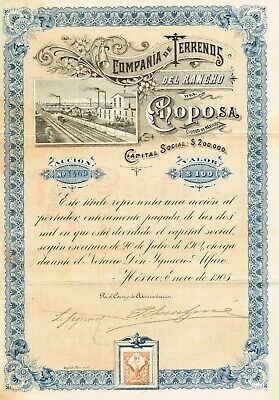 COMPAÑIA DE TERRENOS
DEL RANCHO
DEL
CHOPO, S.A.
CIUDAD DE MÉXICO
CAPITAL SOCIAL: $ 200,000.
ACCIÓN VALOR
No. 1469 $ 100
Este título representa una acción al
portador, enteramente pagada, de las dos
mil en que está dividido el capital social,
según escritura de 20 de Julio de 1904, otorgada
ante el Notario Don Ignacio Alfaro.
México, Enero de 1905
Por el Consejo de Administración
10